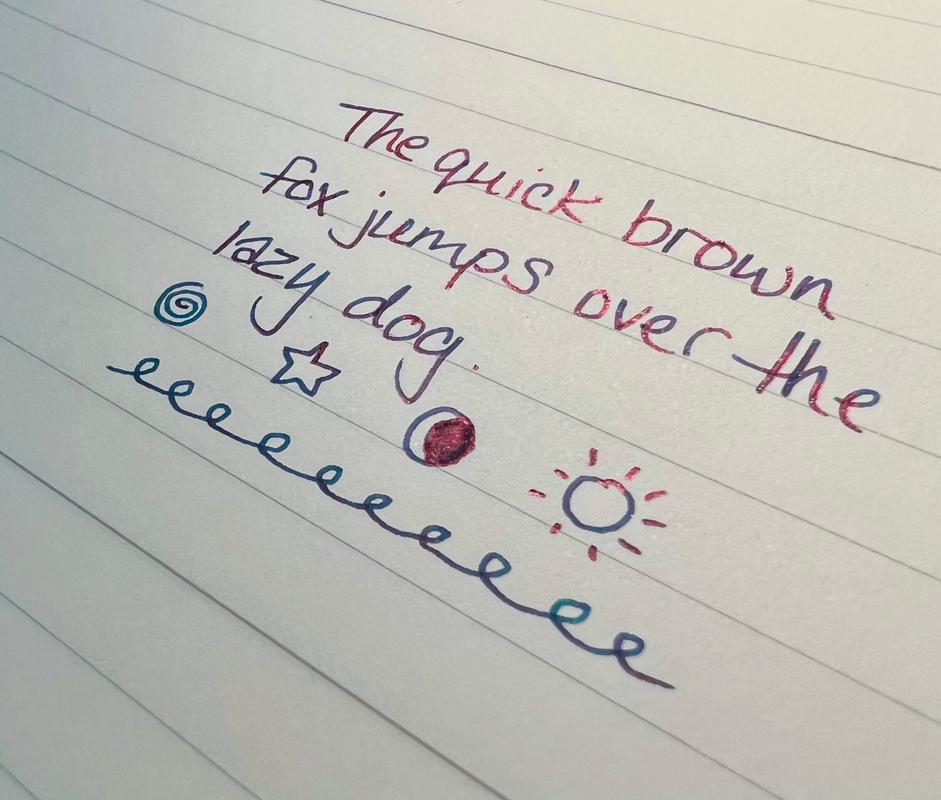 The quick brown
fox jumps over the
lazy dog.